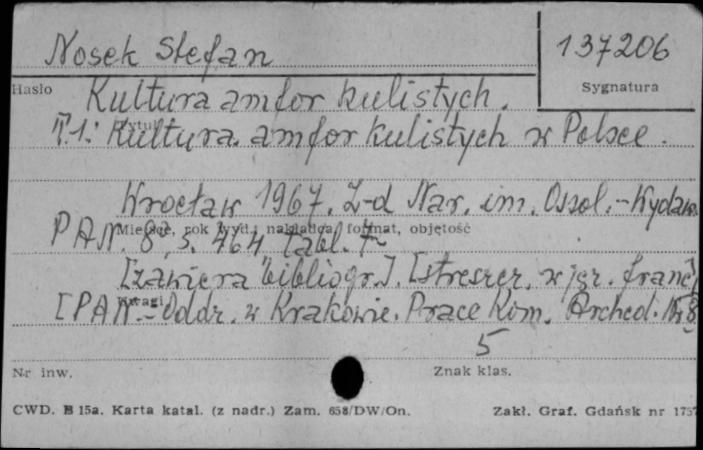 Nosek Stefan
137206
Hasło
Sygnatura
Kultura amfor kulistych.
Tytuł
T.1: Kultura amfor kulistych w Polsce.
Wrocław 1967. Z-d Nar. im. Ossol. - Wydaw.
Miejsce, rok wyd., nakładca, format, objętość
PAN. 8°, s. 464 tabl. 7
[zawiera bibliogr.]. [streszcz. w jęz. franc]
Uwagi
[PAN - Oddz. w Krakowie. Prace Kom. Archeol. Nr 8
5
Nr inw.
Znak klas.
CWD. B 15a. Karta katal. (z nadr.) Zam. 658/DW/On.
Zakł. Graf. Gdańsk nr 1757